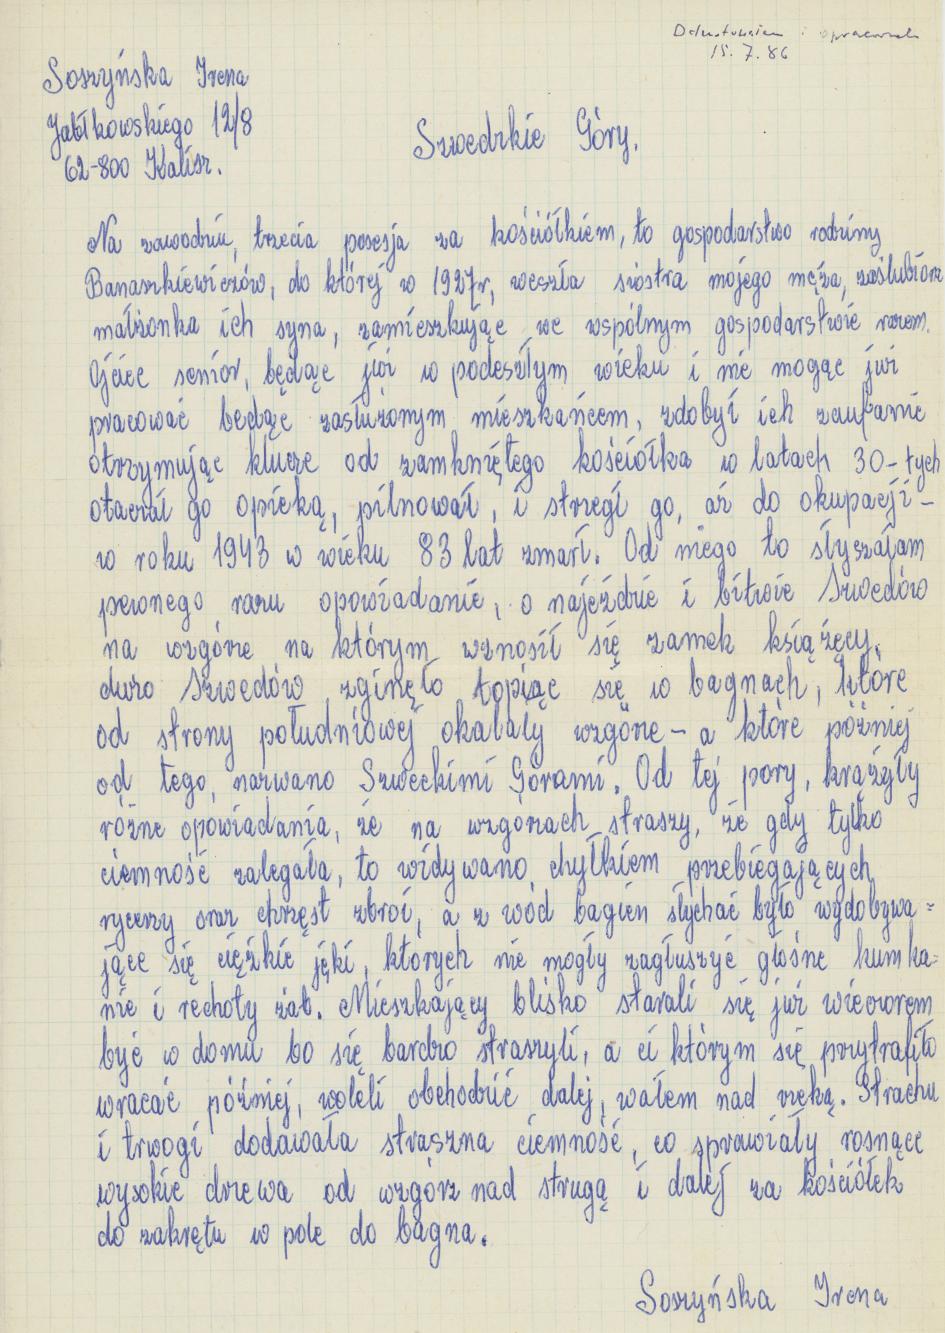 i opracowała
15. 7. 86
Soszyńska Irena
Jabłkowskiego 12/8
62-800 Kalisz.
Szwedzkie Góry.
Na zawodziu, trzecia posesja za kościółkiem, to gospodarstwo rodziny
Banaszkiewiczów, do której w 1927r, weszła siostra mojego męża, zaślubiorz
małżonka ich syna, zamieszkując we wspólnym gospodarstwie razem.
Ojciec senior, będąc już w podeszłym wieku i nie mogąc już
pracować będąc zasłużonym mieszkańcem, zdobył ich zaufanie
otrzymując klucze od zamkniętego kościółka w latach 30-tych
otaczał go opieką, pilnował, i strzegł go, aż do okupacji –
w roku 1943 w wieku 83 lat zmarł. Od niego to słyszałam
pewnego razu opowiadanie, o najeździe i bitwie Szwedów
na wzgórze na którym wznosił się zamek książęcy.
dużo Szwedów zginęło topiąc się w bagnach, które
od strony południowej okalały wzgórze – a które później
od tego, nazwano Szweckimi Górami. Od tej pory, krążyły
różne opowiadania, że na wzgórzach straszy, że gdy tylko
ciemność zalegała, to widywano chyłkiem przebiegających
rycerzy oraz chrzęst zbroi, a z wód bagien słychać było wydobywa=
jące się ciężkie jęki, których nie mogły zagłuszyć głośne kumka=
nie i rechoty żab. Mieszkający blisko starali się już wieczorem
być w domu bo się bardzo straszyli, a ci którym się przytrafiło
wracać później, woleli obchodzić dalej, wałem nad rzeką. Strachu
i trwogi dodawała straszna ciemność, co sprawiały rosnące
wysokie drzewa od wzgórz nad strugą i dalej za kościółek
do zakrętu w pole do bagna.
Soszyńska Irena